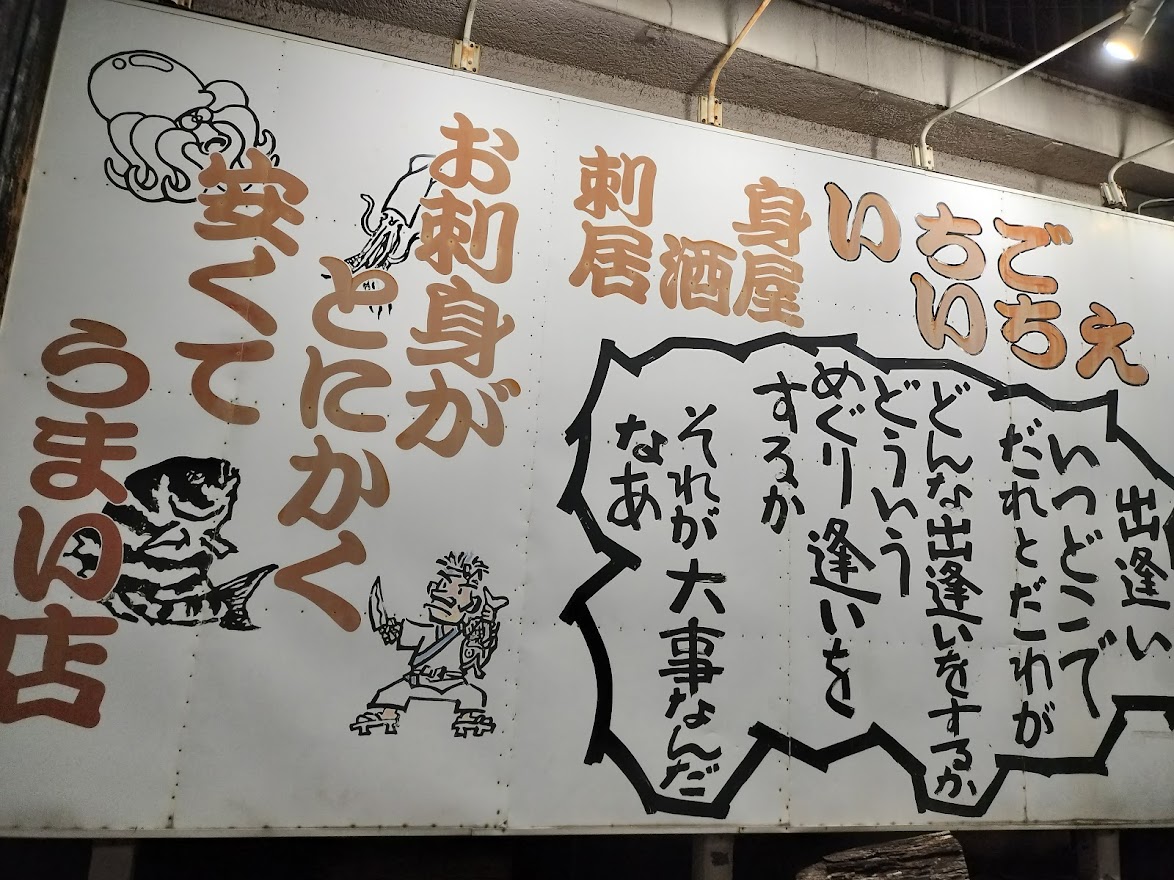 いちご
いちえ
刺身
居酒屋
出逢い
いつどこで
だれとだれが
どんな出逢いをするか
どういう
めぐり逢いを
するか
それが大事なんだ
なあ
お刺身が
とにかく
安くて
うまい店